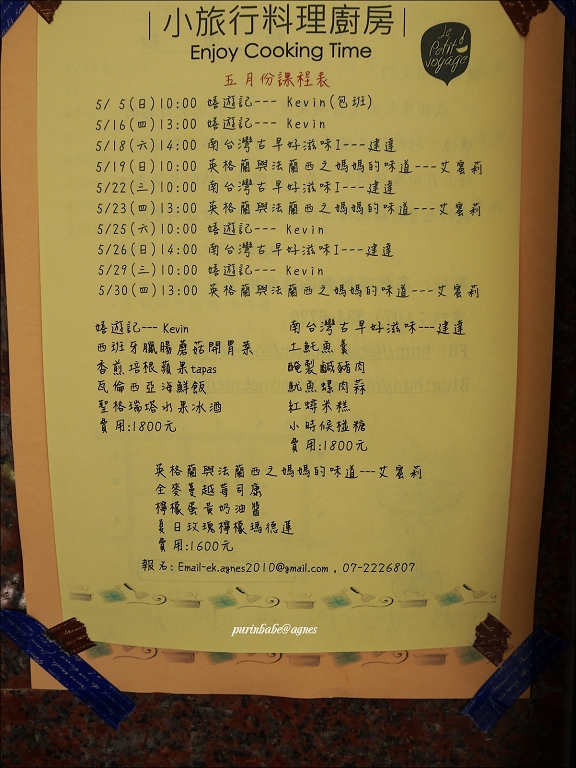 |小旅行料理廚房|
Enjoy Cooking Time
Le Petit Voyage
五月份課程表
5/ 5(日)10:00 嬉遊記--- Kevin(包班)
5/16(四)13:00 嬉遊記--- Kevin
5/18(六)14:00 南台灣古早好滋味I---建達
5/19(日)10:00 英格蘭與法蘭西之媽媽的味道---艾蜜莉
5/22(三)10:00 南台灣古早好滋味I---建達
5/23(四)13:00 英格蘭與法蘭西之媽媽的味道---艾蜜莉
5/25(六)10:00 嬉遊記--- Kevin
5/26(日)14:00 南台灣古早好滋味I---建達
5/29(三)10:00 嬉遊記--- Kevin
5/30(四)13:00 英格蘭與法蘭西之媽媽的味道---艾蜜莉
嬉遊記--- Kevin
西班牙臘腸蘑菇開胃菜
香煎培根蘋果tapas
瓦倫西亞海鮮飯
聖格瑞塔水果冰酒
費用:1800元
南台灣古早好滋味---建達
土魠魚羹
醃製鹹豬肉
魷魚螺肉蒜
紅蟳米糕
小時候椪糖
費用:1800元
英格蘭與法蘭西之媽媽的味道---艾蜜莉
全麥蔓越莓司康
檸檬蛋黃奶油醬
夏日玫瑰檸檬瑪德蓮
費用:1600元
報名: Email-ek.agnes2010@gmail.com . 07-2226807
purinbabe@agnes